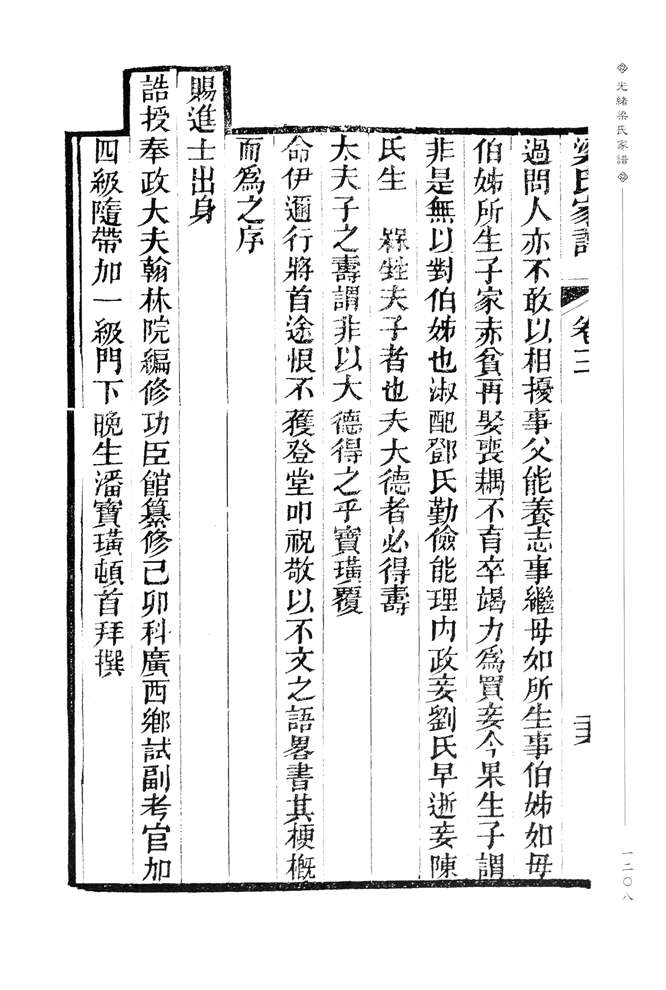 光緒梁氏家譜
一二〇八
梁氏家譜 卷三
過問人亦不敢以相擾事父能養志事繼母如所生事伯姊如母
伯姊所生子家赤貧再娶喪耦不育卒竭力爲買妾今果生子謂
非是無以對伯姊也淑配鄧氏勤儉能理内政妾劉氏早逝妾陳
氏生 夫子者也夫大德者必得壽
太夫子之壽謂非以大德得之乎寶璜覆
命伊邇行將首途恨不獲登堂叩祝敬以不文之語畧書其梗概
而爲之序
賜進士出身
誥授奉政大夫翰林院編修功臣館纂修己卯科廣西鄉試副考官加
四級隨帶加一級門下晚生潘寶璜頓首拜撰